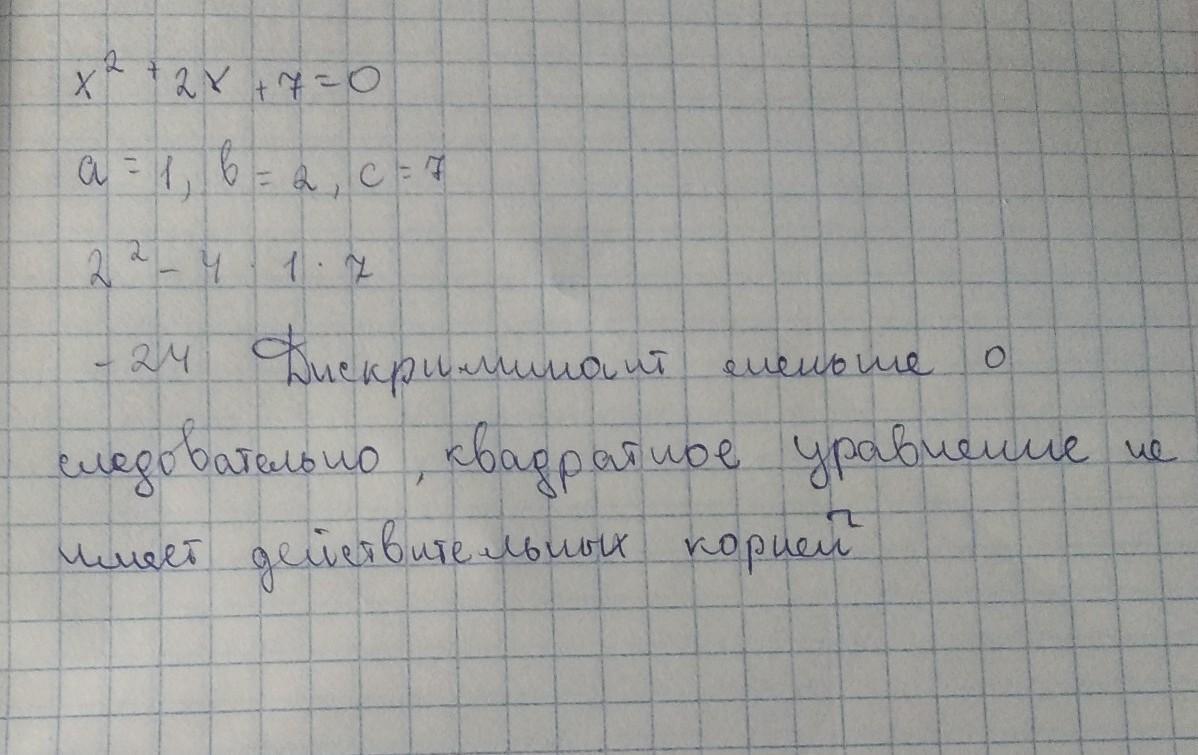 x² + 2x + 7 = 0
a = 1, b = 2, c = 7
2² - 4 · 1 · 7
- 24 Дискриминант меньше 0
следовательно, квадратное уравнение не
имеет действительных корней